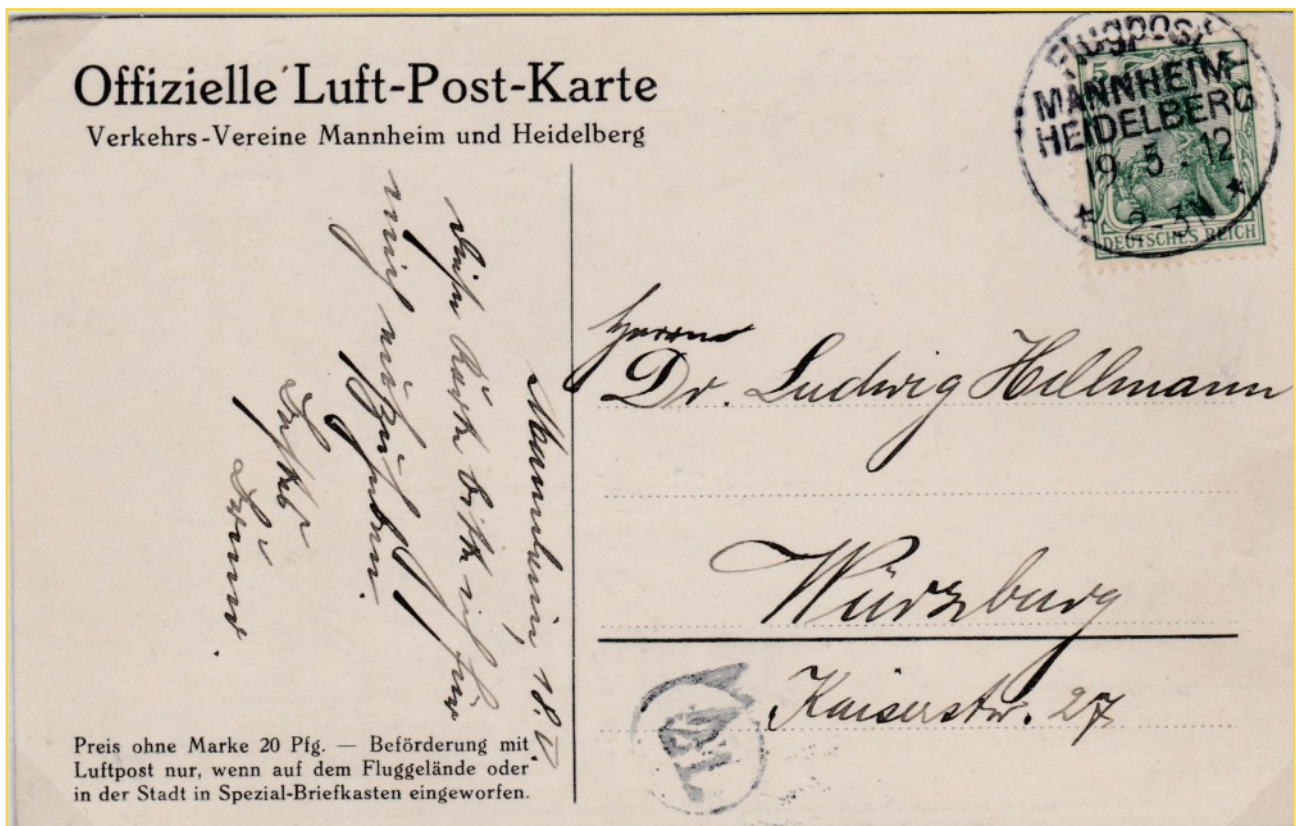 Offizielle Luft-Post-Karte
Verkehrs-Vereine Mannheim und Heidelberg
Flugpost
MANNHEIM-
HEIDELBERG
19 5 . 12
* 2-3N *
5
DEUTSCHES REICH
Mannheim, 18. V
Diese Karte bitte ich für
mich aufzuheben.
Herrn
Dr. Ludwig Hellmann
Würzburg
Kaiserstr. 27
Preis ohne Marke 20 Pfg. — Beförderung mit
Luftpost nur, wenn auf dem Fluggelände oder
in der Stadt in Spezial-Briefkasten eingeworfen.